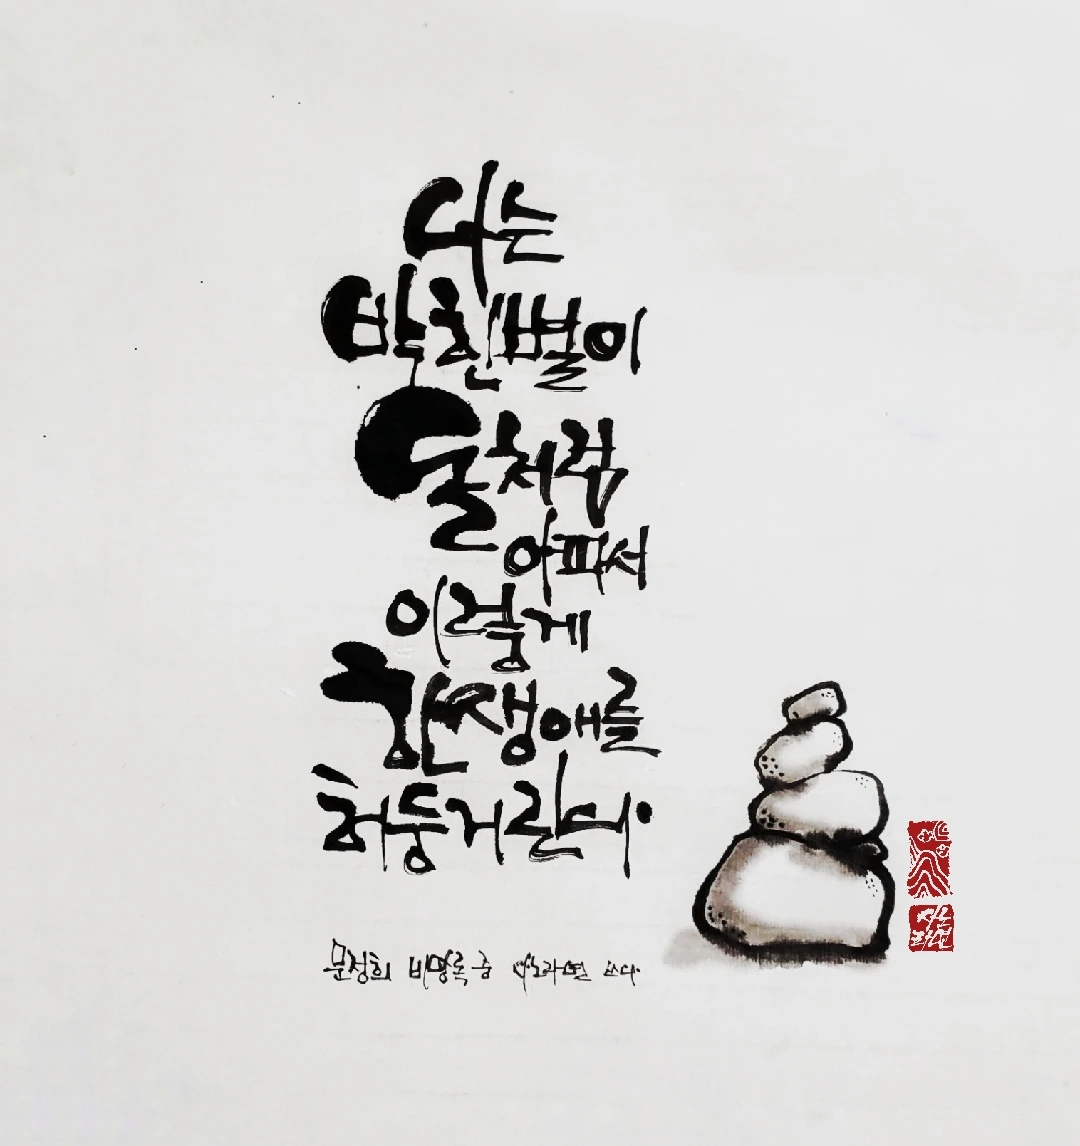 나는
박힌별이
돌처럼
아파서
이렇게
한생애를
허둥거린다
문정희 비망록 중 쓰다